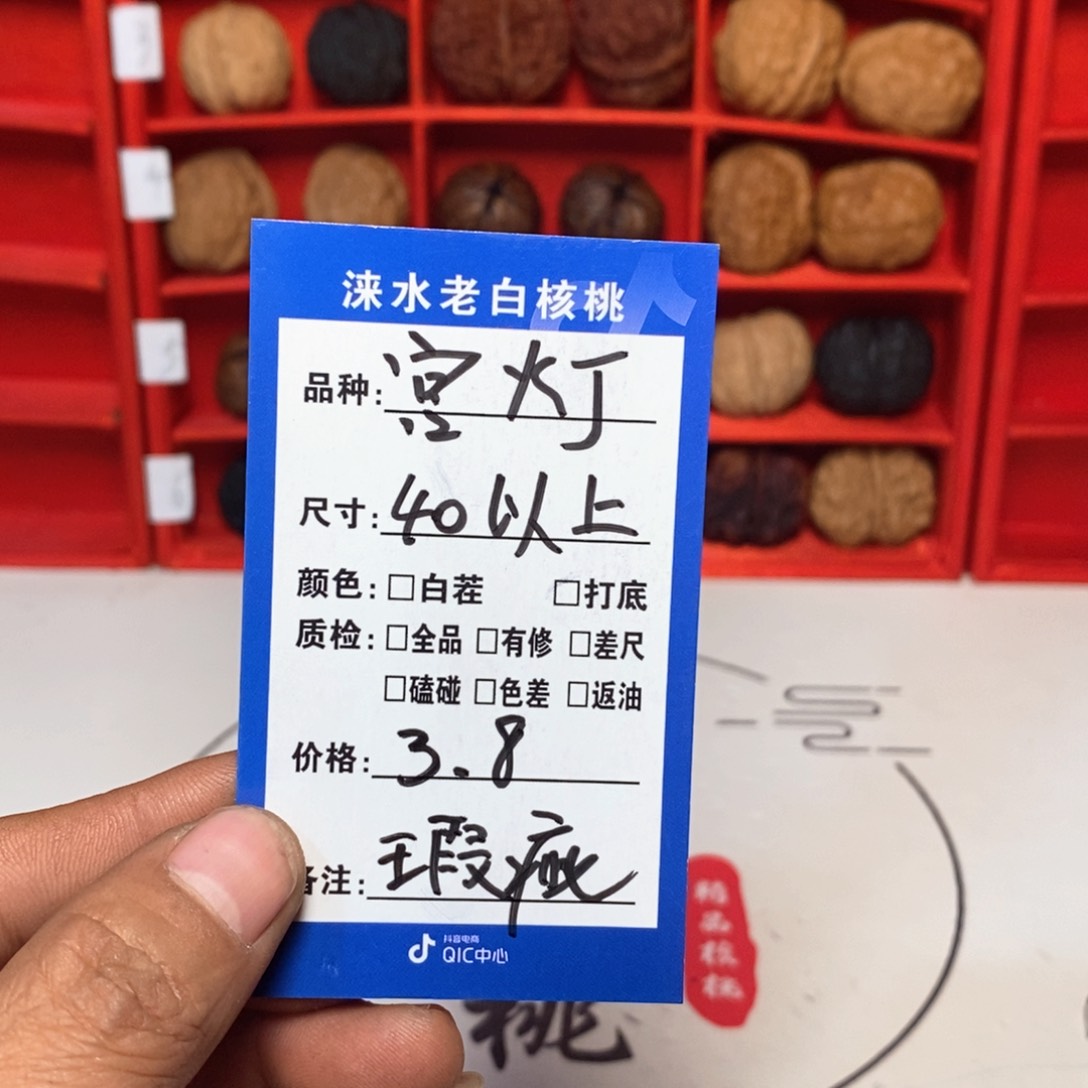 涞水老白核桃
品种:宫灯
尺寸:40以上
颜色:□白茬 □打底
质检:□全品 □有修 □差尺
□磕碰 □色差 □返油
价格:3.8
备注:瑕疵
抖音电商
QIC中心
精品核桃
桃